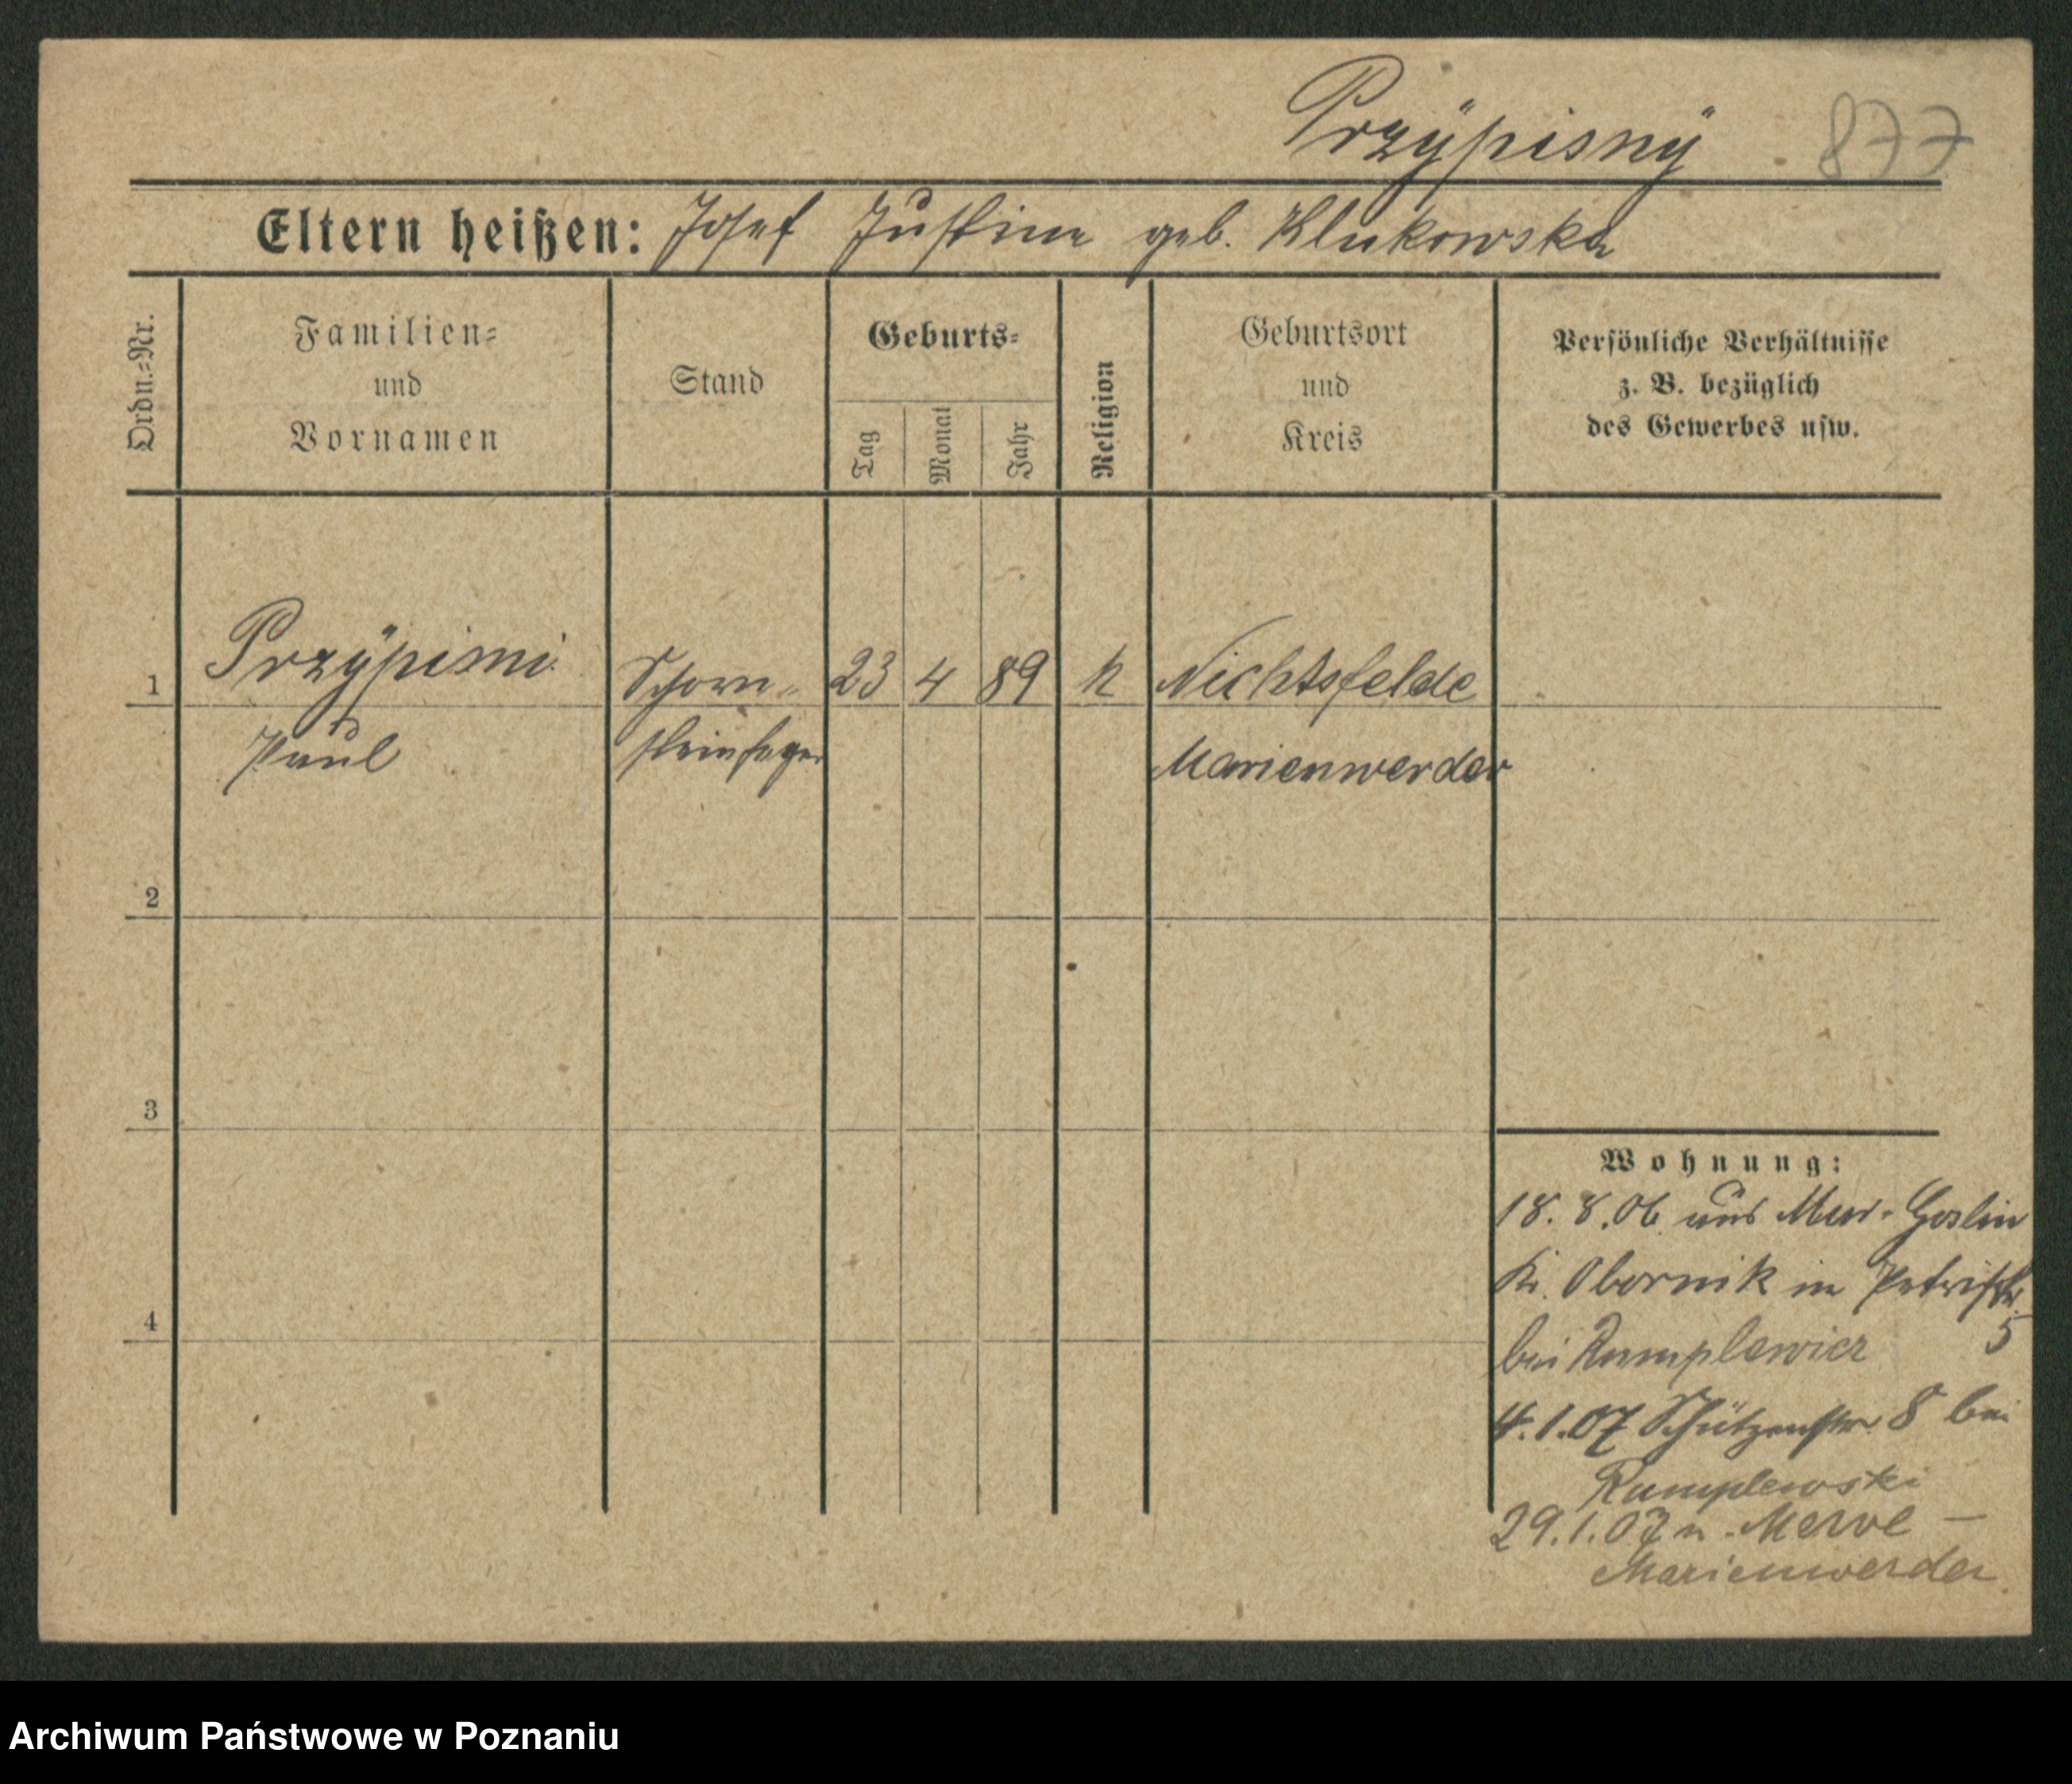 Przÿpisnÿ 877
Eltern heißen: Josef Justine geb. Klukowska
Ordn.-Nr.
Familien-
und
Vornamen
Stand
Geburts-
Tag
Monat
Jahr
Religion
Geburtsort
und
Kreis
Persönliche Verhältnisse
z. B. bezüglich
des Gewerbes usw.
1 Przÿpisni Schorn- 23 4 89 k Nichtsfelde
Paul steinfeger Marienwerder
2
3
4
Wohnung:
18. 8. 06 aus Mur. Goslin
Kr. Obornik in Petristr.
5
bei Rumplewicz
4.1.07 Schützenstr 8 bei
Rumplewski
29.1.07 n. Mewe –
Marienwerder.
Archiwum Państwowe w Poznaniu